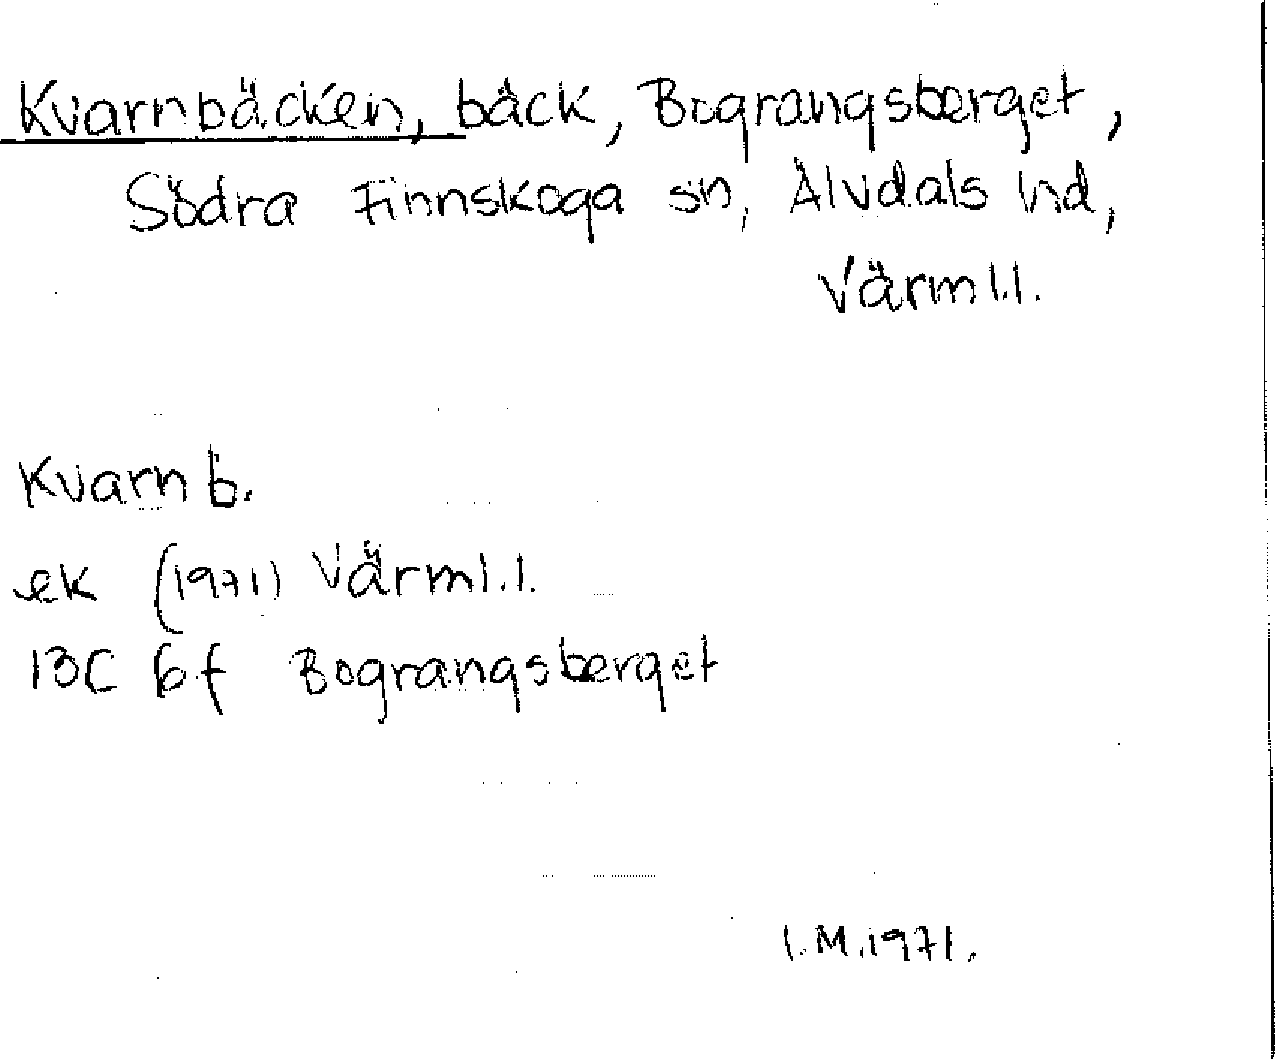 Kvarnbäcken, bäck, Bograngsberget,
Södra Finnskoga sn, Älvdals hd,
Värml.l.
Kvarnb.
ek (1971) Värml.l.
13C 6f Bograngsberget
I.M.1971.